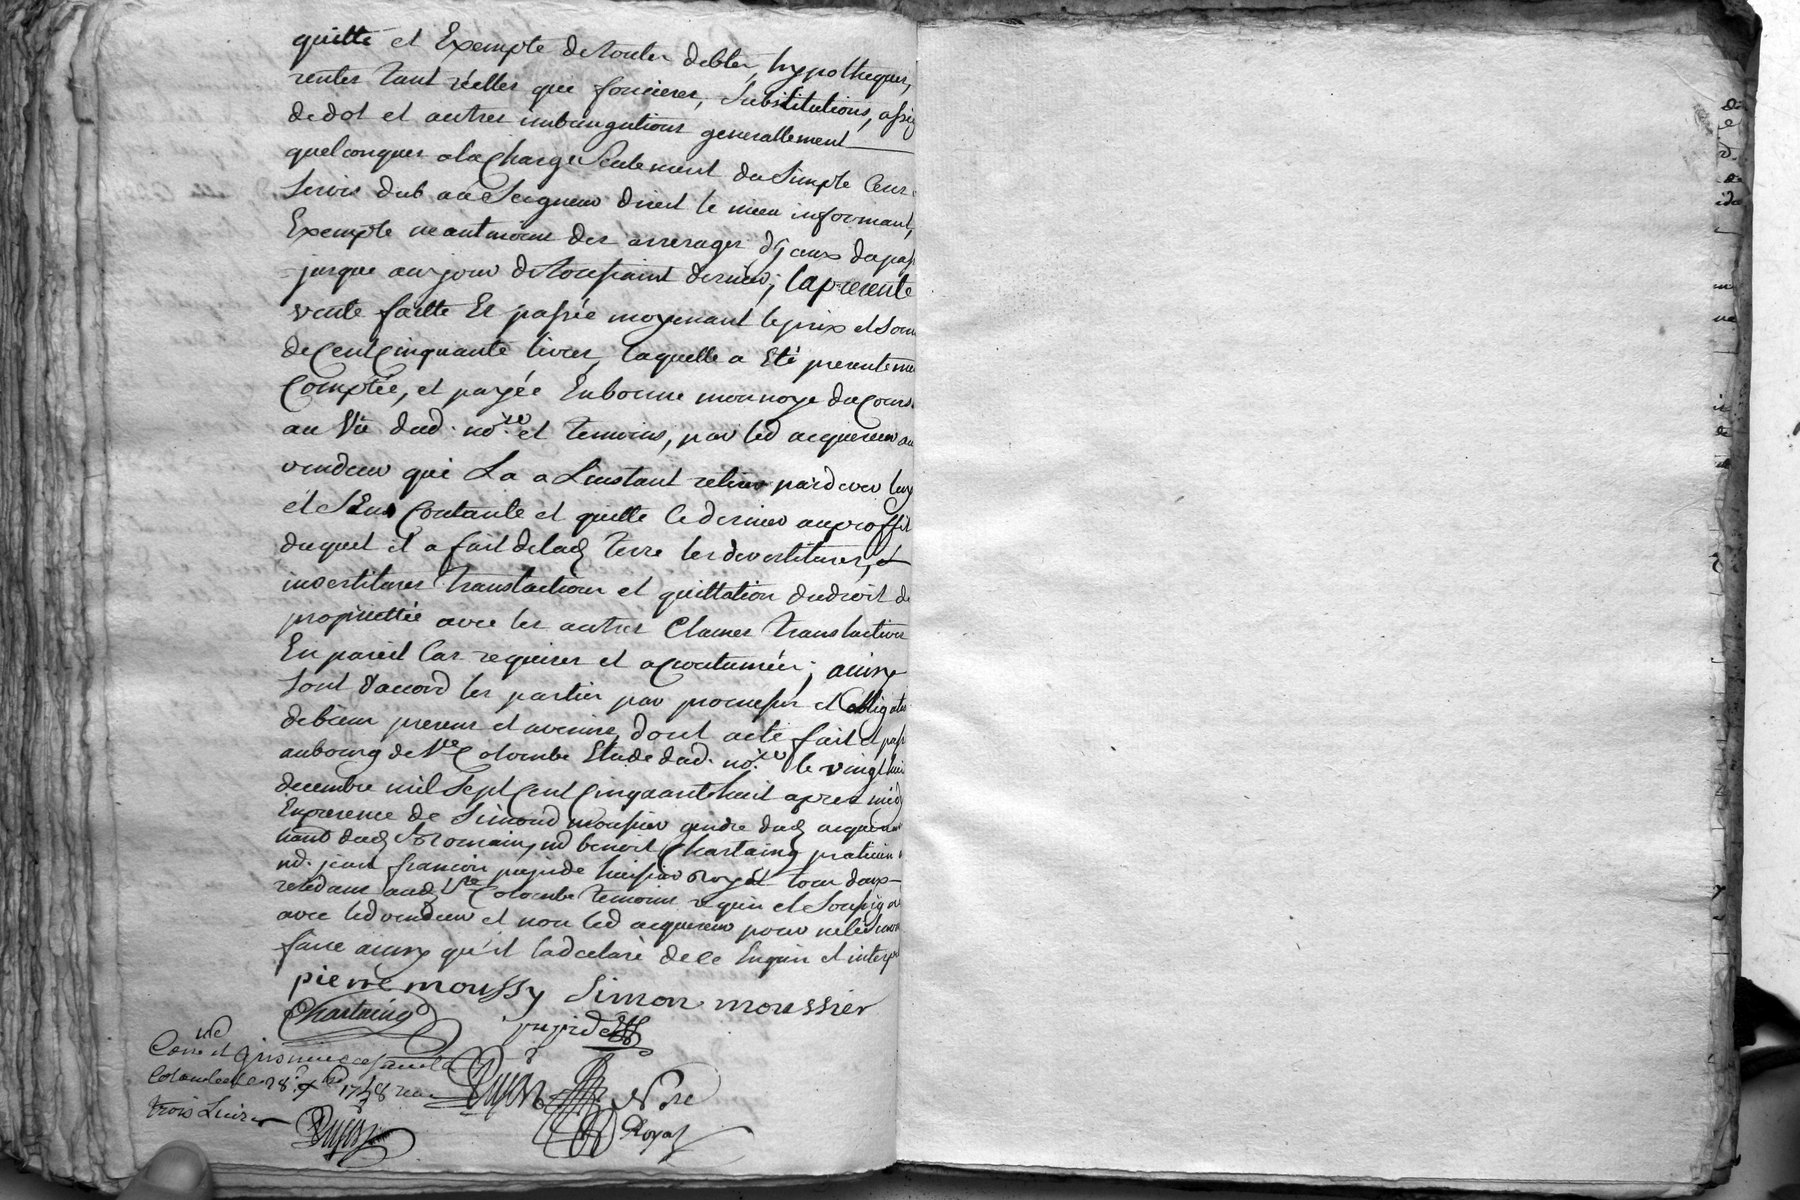 quitte et Exempte de toutes debtes, hypotheques,
rentes tant réelles que foncieres, Substitutions, assig
de dot et autres generallement
quelconques a la Charge Seulement du Simple Cens
Servis dub au Seigneur direct le mieu informant,
Exempte neantmoins des arrerages diceux du pass
jusque au jour de toussaint dernier; la presente
vente faitte Et passée moyenant le prix et Som
de Cent Cinquante livres, laquelle a Eté presenteme
Comptée, et payée En bonne monnoye du Cours
au Vû dud. nore et temoins, par led acquereur au
vendeur qui La a Linstant retiré pardevers luy
et S'En Contante et quitte le dernier au proffit
duquel il a fait de lad terre les devestitures, et
investitures translations et quittation du droit de
propriettée avec les autres Clauses translatives
En pareil Cas requises et acoutumées; ainsy
Sont d'accord les parties par promesses et obligatio
de biens presens et avenirs, dont acte fait et pass
au bourg de Ste Colombe Etude dud. nore le vingt huit
decembre mil Sept Cent Cinquante huit apres midy
En presence de Simond moussier gendre dud acquereur
dud St Romain, md benoit Chartaing praticien
md. jean francois pupide huissier Royal tous deux
residans aud Ste Colombe temoins requis et Soussignes
avec led vendeur et non led acquereur pour ne le Savoir
faire ainsy qu'il la declaré de ce Enquis et interp
pierre moussy Simon moussier
Chartaing pupide
Conlé et
Colombe le 28e xbre 1758 recu
trois Livres
Nre
Royal